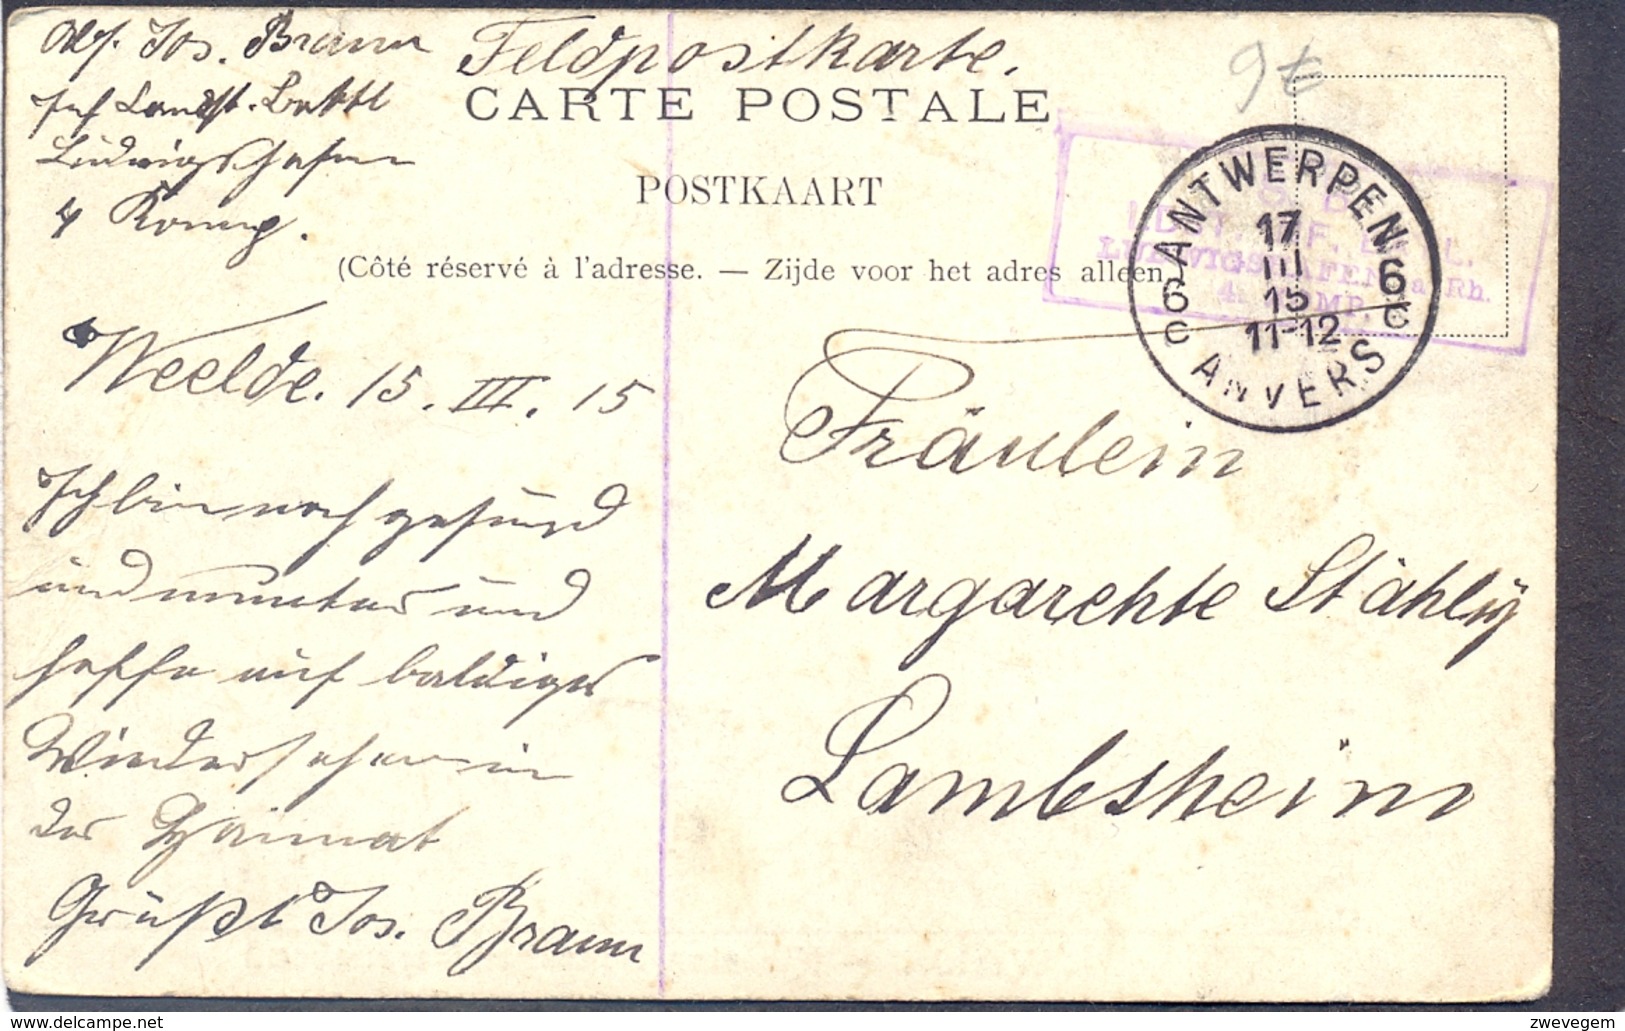 Abs. Jos. Braun
Inf. Landst. Battl
Ludwigshafen
4 Komp.
Feldpostkarte.
CARTE POSTALE
POSTKAART
(Côté réservé à l'adresse. — Zijde voor het adres alleen.)
9 €
ANTWERPEN
17
III
15
11-12
6 6
C C
ANVERS
LUDWIGSHAFEN a. Rh.
4. KOMP.
Weelde. 15. III. 15
Ich bin noch gesund
und munter und
hoffe auf baldiges
Wiedersehen in
der Heimat
Grüßt Jos. Braun
Fräulein
Margarehte Stähly
Lambsheim
© delcampe.net
zwevegem